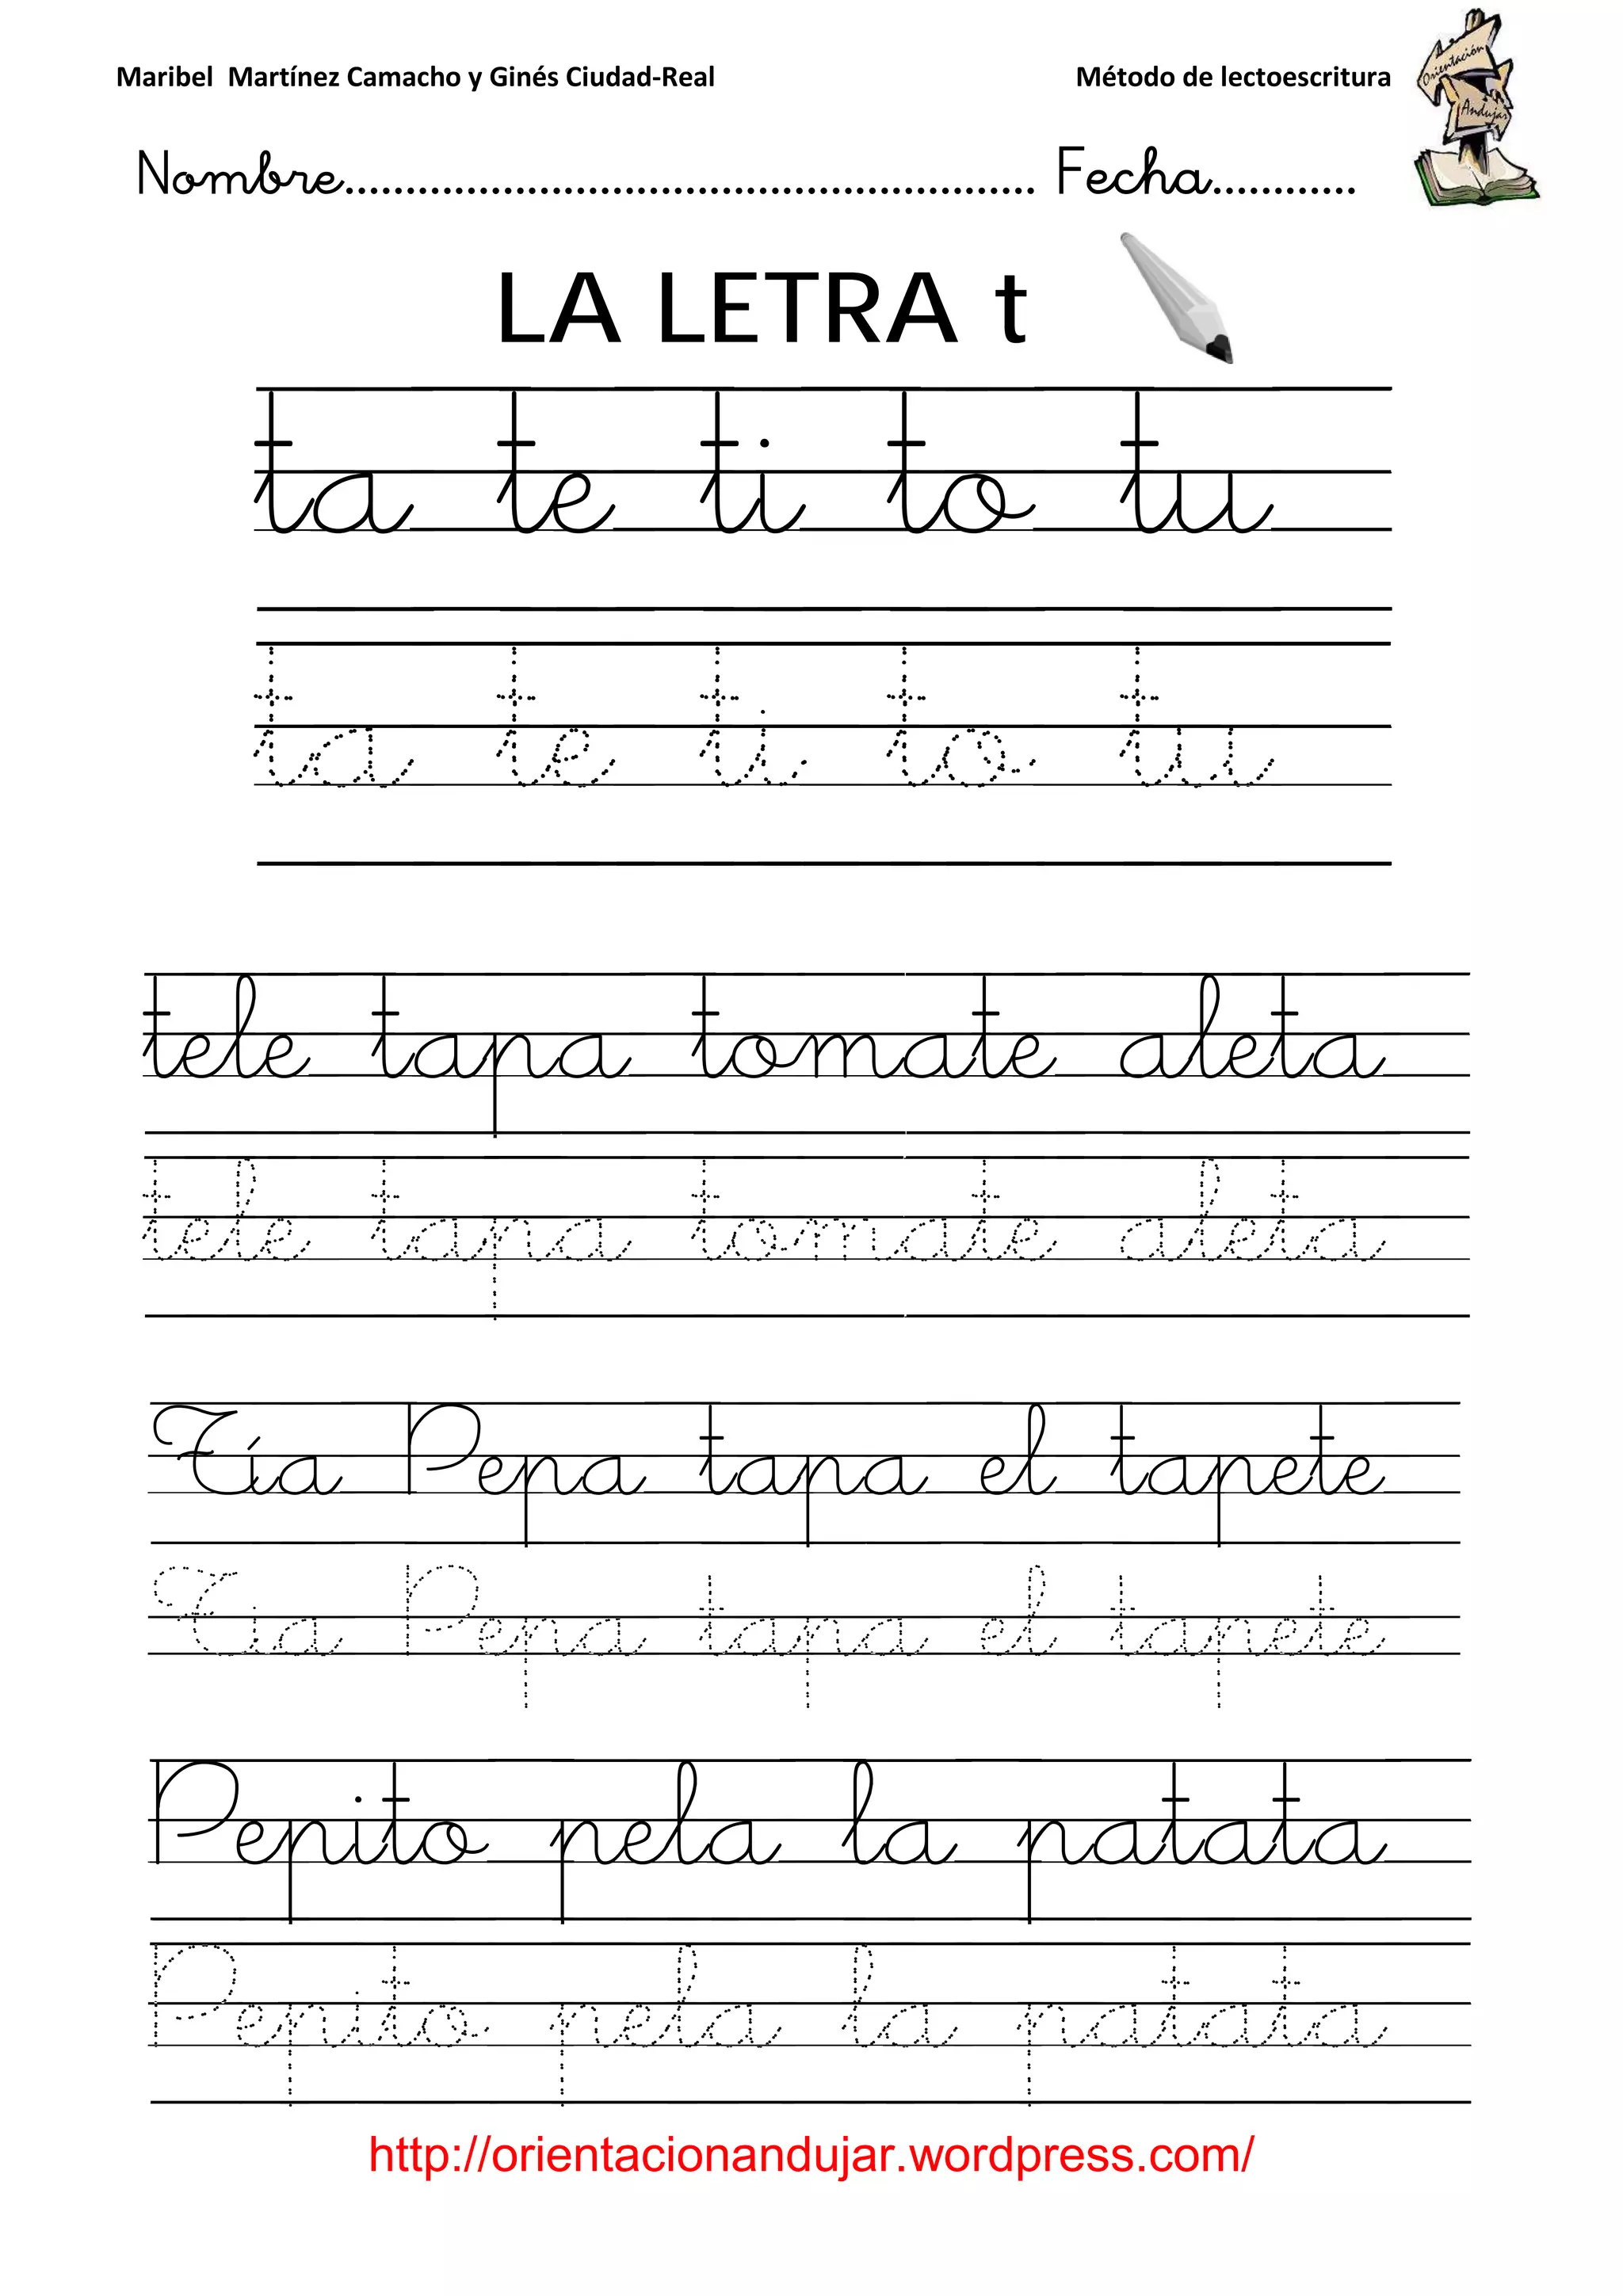 Maribel Martínez Camacho y Ginés Ciudad-Real Método de lectoescritura
Orientación
Andujar
Nombre......................................................... Fecha............
LA LETRA t
ta te ti to tu
ta te ti to tu
tele tapa tomate aleta
tele tapa tomate aleta
Tía Pepa tapa el tapete
Tia Pepa tapa el tapete
Pepito pela la patata
Pepito pela la patata
http://orientacionandujar.wordpress.com/